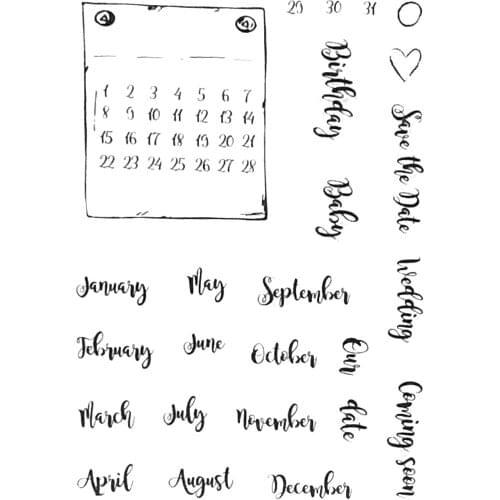 29 30 31
1 2 3 4 5 6 7
8 9 10 11 12 13 14
15 16 17 18 19 20 21
22 23 24 25 26 27 28
Birthday
Baby
Save the Date
Wedding
Coming soon
Our date
January May September
February June October
March July November
April August December